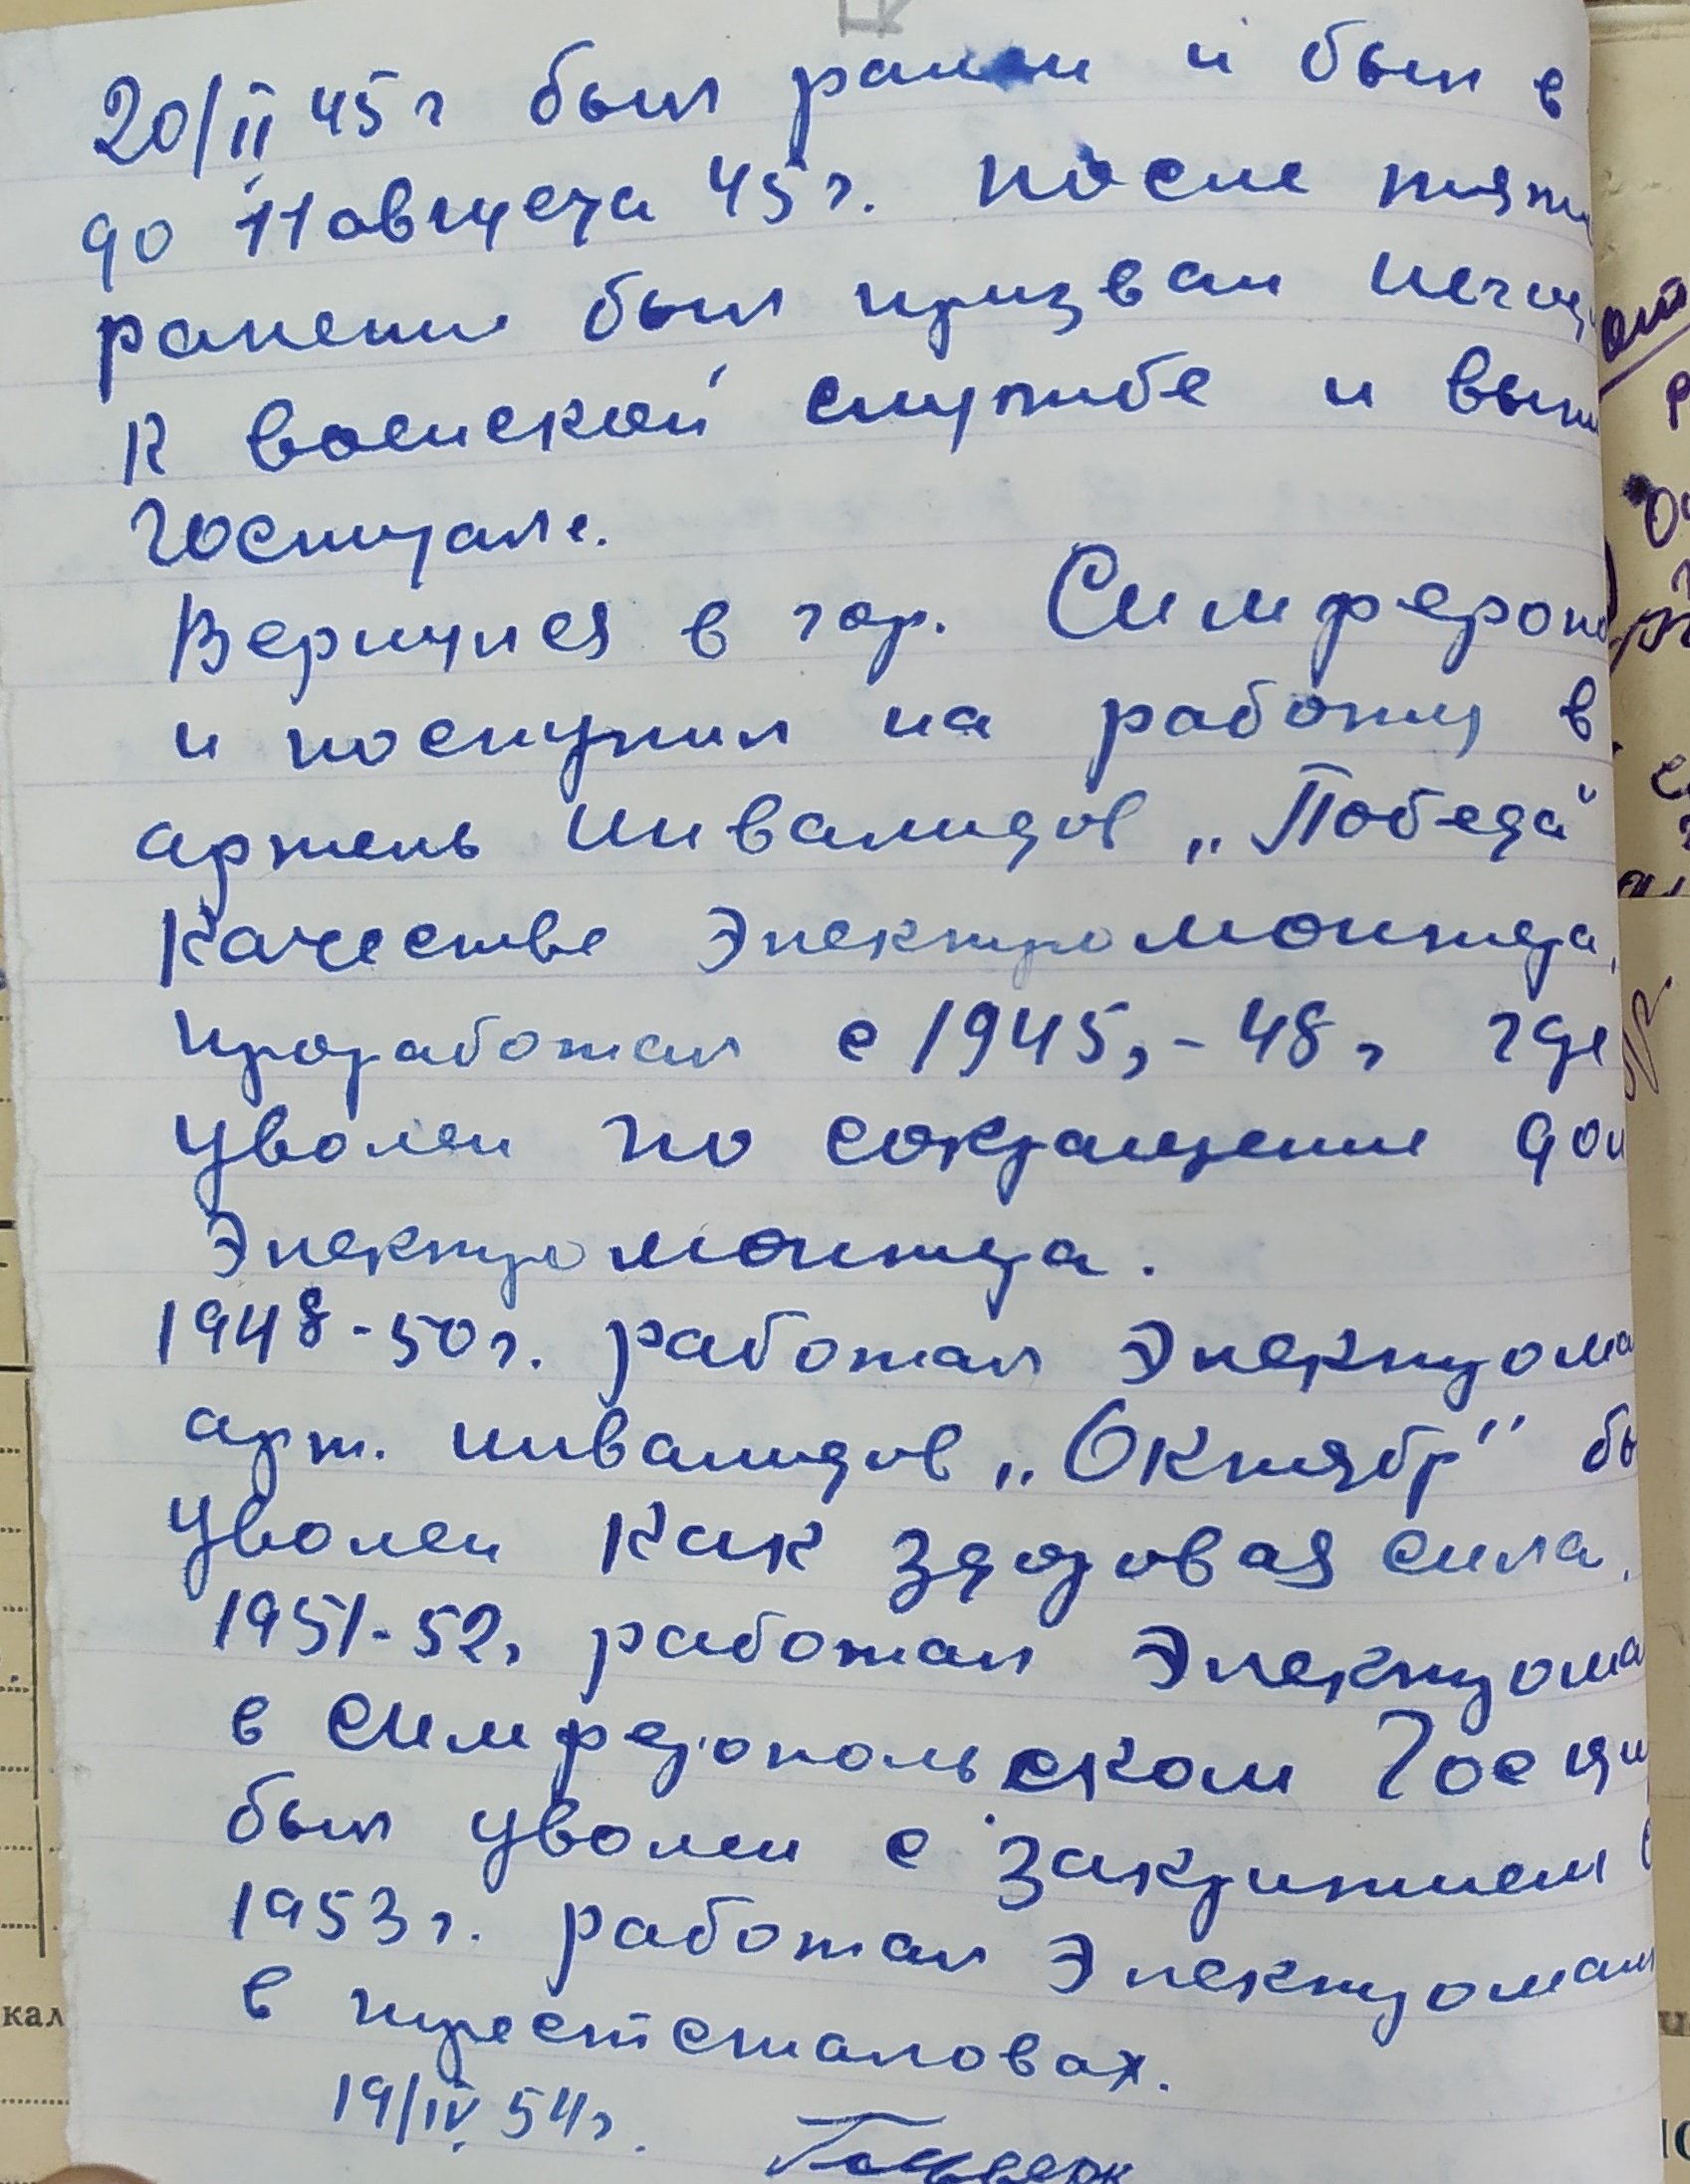 20/II 45г был ранен и был в
до 11 августа 45г. после тяже
ранения был призван негод
к воинской службе и вып
госпиталя.
Вернулся в гор. Симфероп
и поступил на работу в
артель инвалидов „Победа"
качестве электромонтера,
проработал с 1945г-48г где
уволен по сокращение дол
электромонтера.
1948-50г. работал электромо
арт. инвалидов „Октябр" бы
уволен как здоровая сила.
1951-52г работал электромо
в симферопольском Госци
был уволен с закрытием
1953г. работал электромон
в трестстоловах.
19/IV 54г.
кал